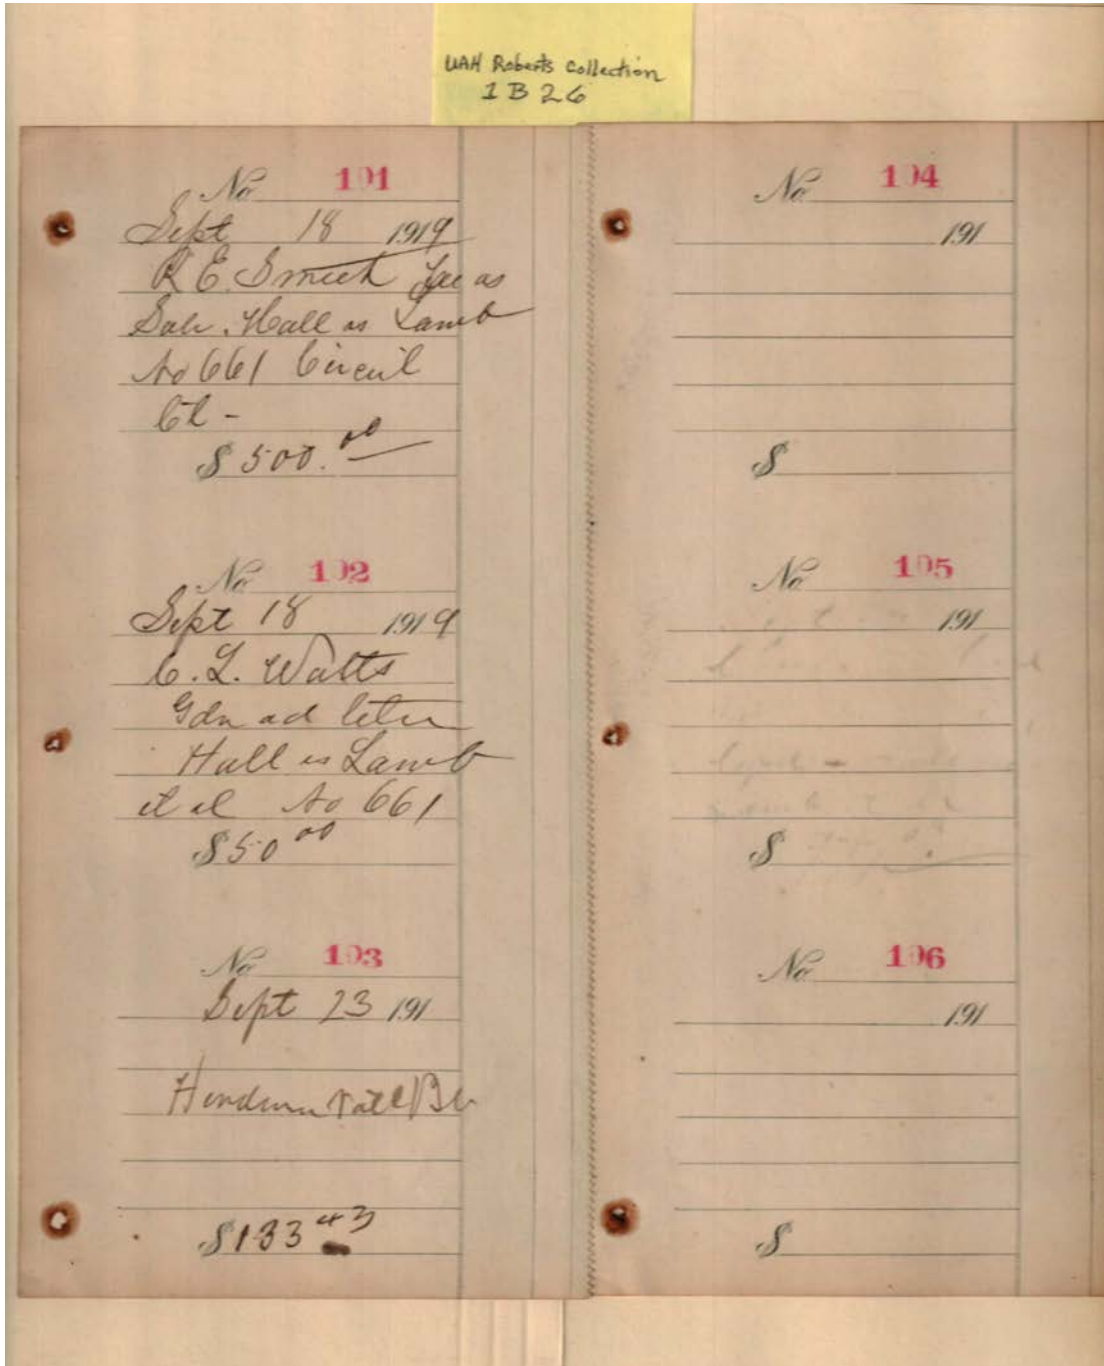 UAH Roberts Collection
1 B 26
No 101
Sept 18 1919
R E. Smith Fee as
Solr. Hall vs Lamb
No 661 Circuit
Ct -
$ 500.00
No 102
Sept 18 1919
C. L. Watts
Gdn ad litem
Hall vs Lamb
et al No 661
$ 50 00
No 103
Sept 23 191
Henderson Natl Bk
$ 133 43
No 104
191
$
No 105
191
$
No 106
191
$